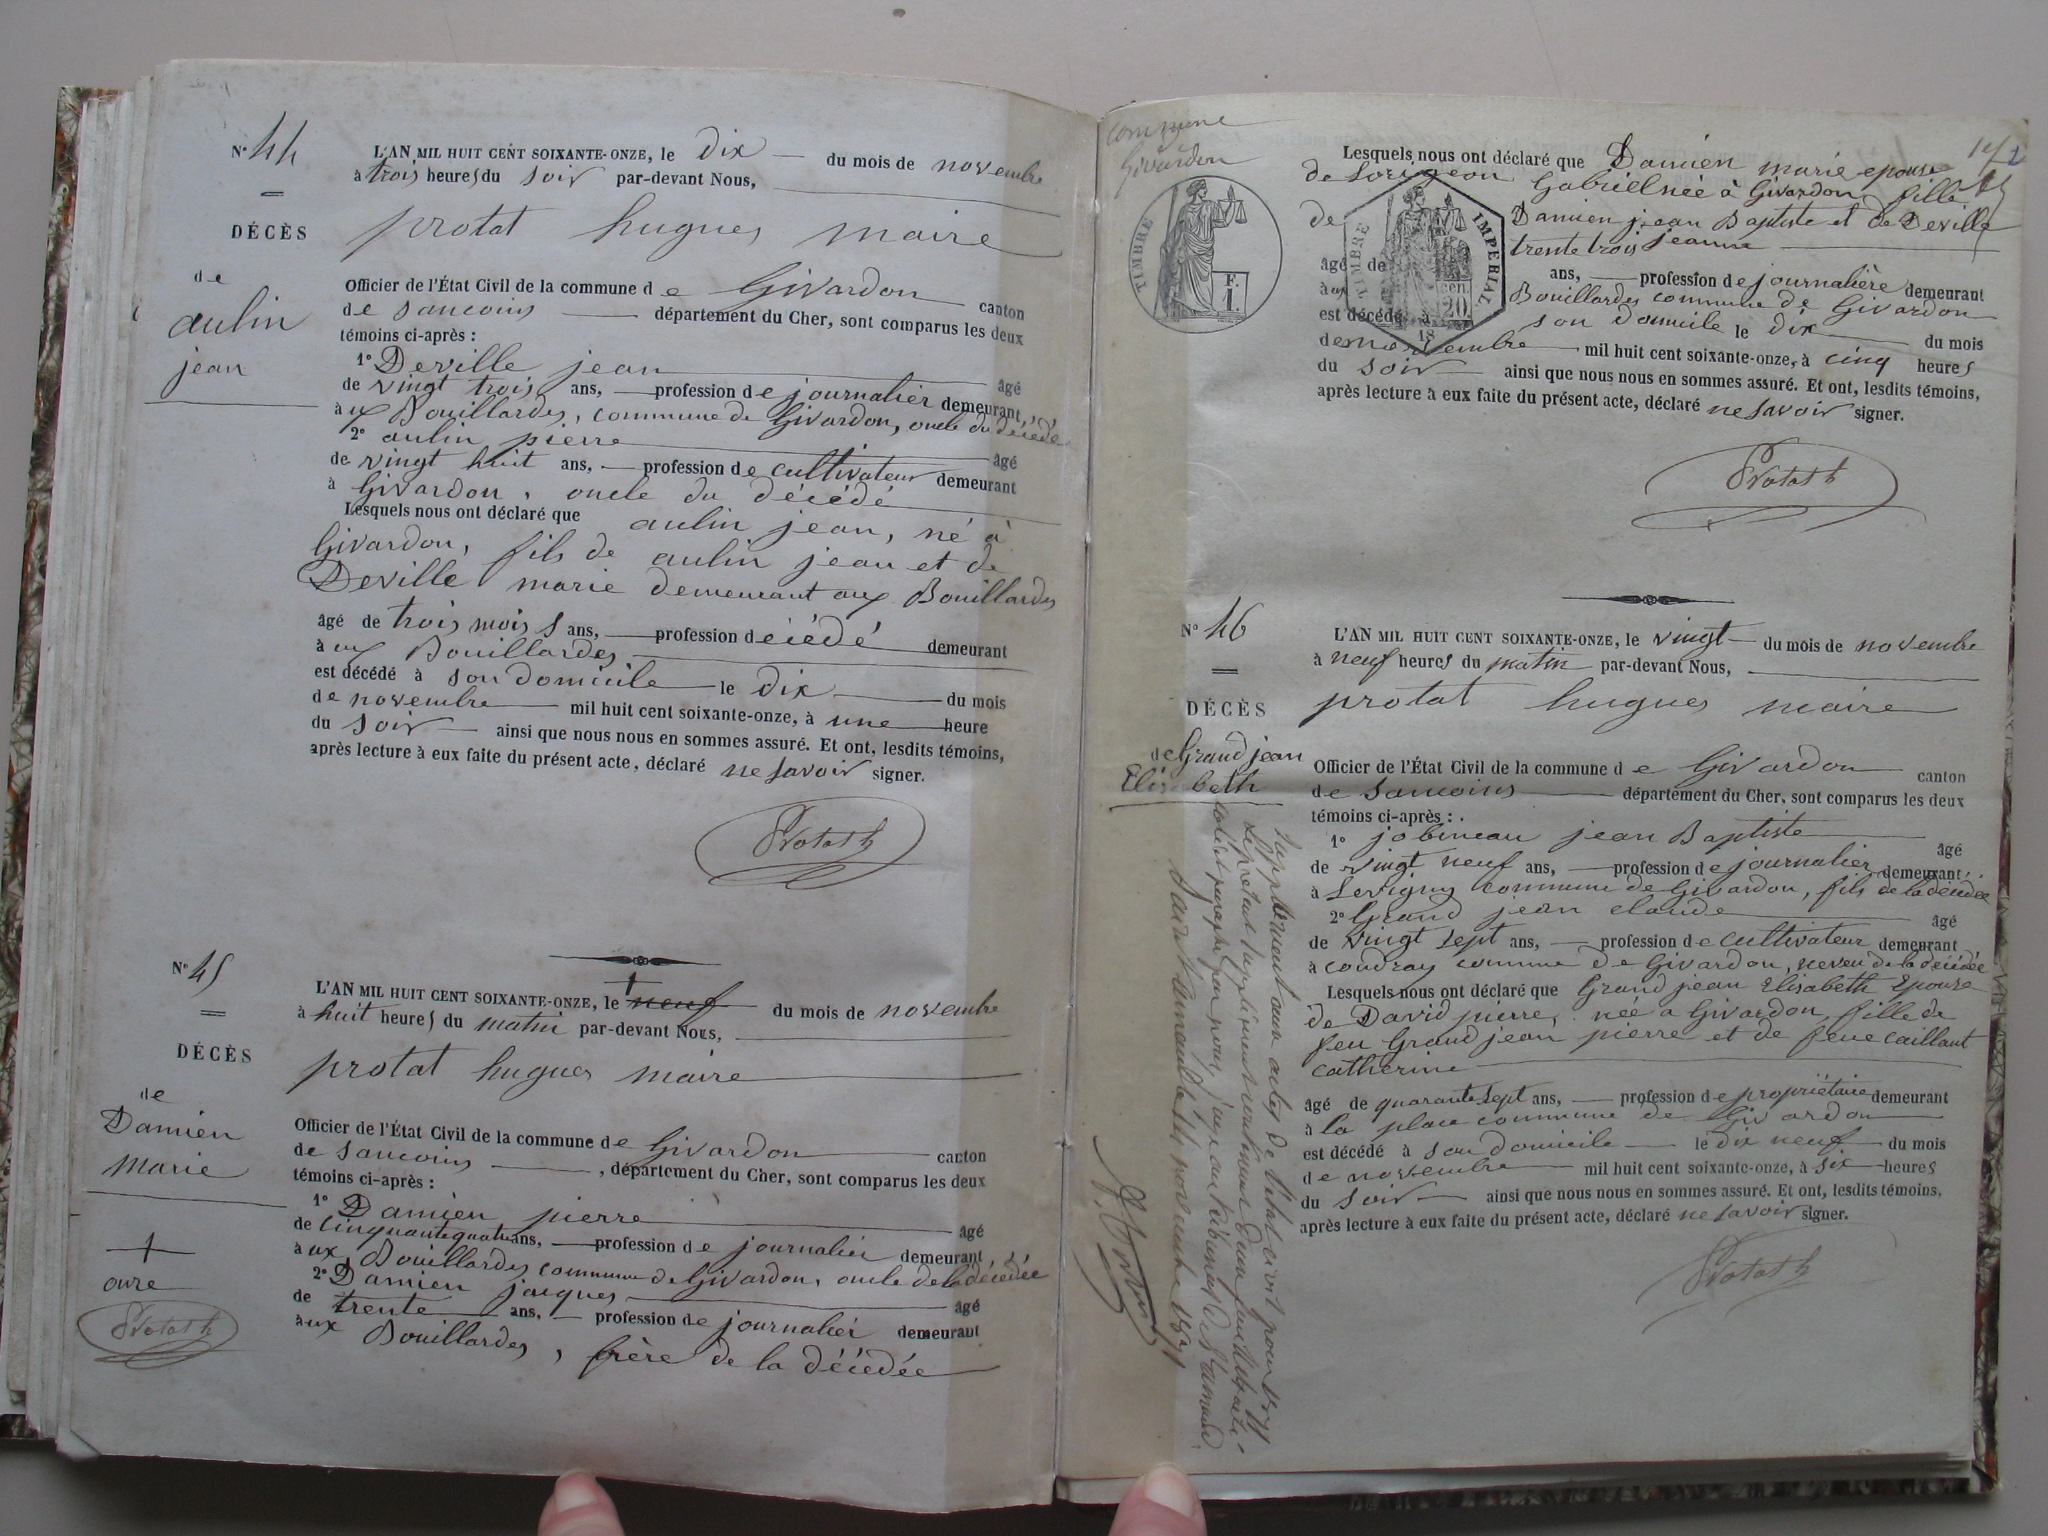 N° 44
L'AN MIL HUIT CENT SOIXANTE-ONZE, le dix du mois de novembre
à trois heures du soir par-devant Nous,
DÉCÈS
protat hugues maire
de
aulin
jean
Officier de l'État Civil de la commune de Givardon canton
de sancoins département du Cher, sont comparus les deux
témoins ci-après :
1° Deville jean âgé
de vingt trois ans, profession de journalier demeurant
à ux Bouillardes, commune de Givardon, oncle du décédé
2° aulin pierre âgé
de vingt huit ans, profession de cultivateur demeurant
à Givardon, oncle du décédé
Lesquels nous ont déclaré que aulin jean, né à
Givardon, fils de aulin jean et de
Deville marie demeurant aux Bouillardes
âgé de trois mois ans, profession décédé demeurant
à ux Bouillardes
est décédé à son domicile le dix du mois
de novembre mil huit cent soixante-onze, à une heure
du soir ainsi que nous nous en sommes assuré. Et ont, lesdits témoins,
après lecture à eux faite du présent acte, déclaré ne savoir signer.
Protat h
N° 45
L'AN MIL HUIT CENT SOIXANTE-ONZE, le neuf du mois de novembre
à huit heures du matin par-devant Nous,
DÉCÈS
protat hugues maire
de
Damien
marie
Officier de l'État Civil de la commune de Givardon canton
de sancoins , département du Cher, sont comparus les deux
témoins ci-après :
1° Damien pierre âgé
de cinquante quatre ans, profession de journalier demeurant
à ux Bouillardes commune de Givardon, oncle de la décédée
2° Damien jacques âgé
de trente ans, profession de journalier demeurant
à ux Bouillardes, frère de la décédée
onze
Protat h
commune
Givardon
TIMBRE
F. 1.
TIMBRE IMPERIAL
20
18
Lesquels nous ont déclaré que Damien marie epouse
de Gabriel née à Givardon fille
de Damien jean Baptiste et de Deville
jeanne
âgé de trente trois ans, profession de journalière demeurant
à ux Bouillardes commune de Givardon
est décédé à son domicile le dix du mois
de novembre mil huit cent soixante-onze, à cinq heures
du soir ainsi que nous nous en sommes assuré. Et ont, lesdits témoins,
après lecture à eux faite du présent acte, déclaré ne savoir signer.
Protat h
N° 46
L'AN MIL HUIT CENT SOIXANTE-ONZE, le vingt du mois de novembre
à neuf heures du matin par-devant Nous,
DÉCÈS
protat hugues maire
de Grand jean
Elisabeth
Officier de l'État Civil de la commune de Givardon canton
de sancoins département du Cher, sont comparus les deux
témoins ci-après :
1° jobineau jean Baptiste âgé
de vingt neuf ans, profession de journalier demeurant
à Sevigny commune de Givardon, fils de la décédée
2° Grand jean claude âgé
de vingt sept ans, profession de cultivateur demeurant
à coudray commune de Givardon, neveu de la décédée
Lesquels nous ont déclaré que Grand jean Elisabeth Epouse
de David pierre, née a Givardon fille de
feu Grand jean pierre et de feue caillaut
catherine
âgé de quarante sept ans, profession de propriétaire demeurant
à la place commune de Givardon
est décédé à son domicile le dix neuf du mois
de novembre mil huit cent soixante-onze, à six heures
du soir ainsi que nous nous en sommes assuré. Et ont, lesdits témoins,
après lecture à eux faite du présent acte, déclaré ne savoir signer.
Protat h
Supplément aux actes de l'état civil pour 1871
Le présent supplément contenant une feuille a été
coté et paraphé par nous, juge au tribunal de St amand
Saint Amand le novembre 1871